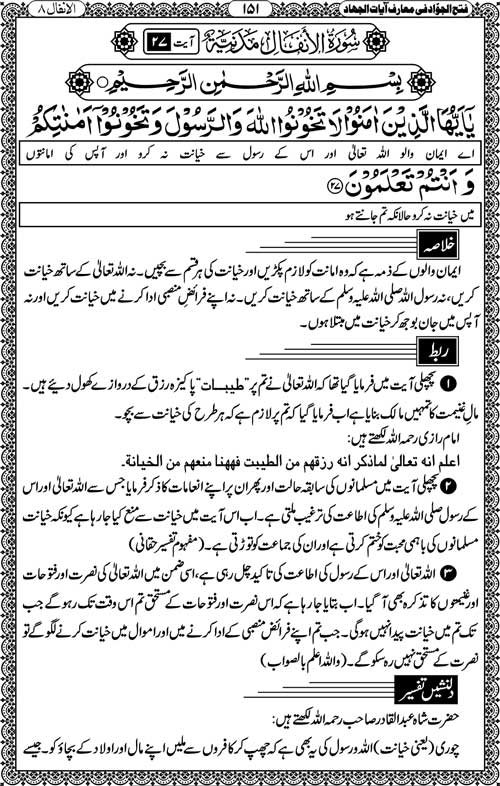 فتح الجوّاد فی معارف آیات الجهاد ۱۵۱ الانفال ۸
سُورَةُ الْأَنْفَالِ مَدَنِيَّةٌ آیت ۲۷
بِسْمِ اللهِ الرَّحْمٰنِ الرَّحِيْمِ
يٰٓاَيُّهَا الَّذِيْنَ اٰمَنُوْا لَا تَخُوْنُوا اللّٰهَ وَالرَّسُوْلَ وَتَخُوْنُوْٓا اَمٰنٰتِكُمْ
اے ایمان والو اللہ تعالیٰ اور اس کے رسول سے خیانت نہ کرو اور آپس کی امانتوں
وَ اَنْتُمْ تَعْلَمُوْنَ ۲۷
میں خیانت نہ کرو حالانکہ تم جانتے ہو
خلاصہ
ایمان والوں کے ذمہ ہے کہ وہ امانت کو لازم پکڑیں اور خیانت کی ہر قسم سے بچیں۔ نہ اللہ تعالیٰ کے ساتھ خیانت
کریں، نہ رسول اللہ صلی اللہ علیہ وسلم کے ساتھ خیانت کریں۔ نہ اپنے فرائض منصبی ادا کرنے میں خیانت کریں اور نہ
آپس میں جان بوجھ کر خیانت میں مبتلا ہوں۔
ربط
۱ پچھلی آیت میں فرمایا گیا تھا کہ اللہ تعالیٰ نے تم پر "طیبات" پاکیزہ رزق کے دروازے کھول دیئے ہیں۔
مال غنیمت کا تمہیں مالک بنایا ہے اب فرمایا گیا کہ تم پر لازم ہے کہ ہر طرح کی خیانت سے بچو۔
امام رازی رحمہ اللہ لکھتے ہیں:
اعلم انه تعالىٰ لماذكر انه رزقهم من الطيبت فههنا منعهم من الخيانة۔
۲ پچھلی آیت میں مسلمانوں کی سابقہ حالت اور پھر ان پر اپنے انعامات کا ذکر فرمایا جس سے اللہ تعالیٰ اور اس
کے رسول صلی اللہ علیہ وسلم کی اطاعت کی ترغیب ملتی ہے۔ اب اس آیت میں خیانت سے منع کیا جا رہا ہے کیونکہ خیانت
مسلمانوں کی باہمی محبت کو ختم کرتی ہے اور ان کی جماعت کو توڑتی ہے۔ (مفہوم تفسیر حقانی)
۳ اللہ تعالیٰ اور اس کے رسول کی اطاعت کی تاکید چل رہی ہے، اسی ضمن میں اللہ تعالیٰ کی نصرت اور فتوحات
اور غنیمتوں کا تذکرہ بھی آ گیا۔ اب بتایا جا رہا ہے کہ اس نصرت اور فتوحات کے مستحق تم اس وقت تک رہو گے جب
تک تم میں خیانت پیدا نہیں ہو گی۔ جب تم اپنے فرائض منصبی کے ادا کرنے میں اور اموال میں خیانت کرنے لگو گے تو
نصرت کے مستحق نہیں رہ سکو گے۔ (واللہ اعلم بالصواب)
دلنشیں تفسیر
حضرت شاہ عبدالقادر صاحب رحمہ اللہ لکھتے ہیں:
چوری (یعنی خیانت) اللہ و رسول کی یہ بھی ہے کہ چھپ کر کافروں سے ملیں اپنے مال اور اولاد کے بچاؤ کو۔ جیسے